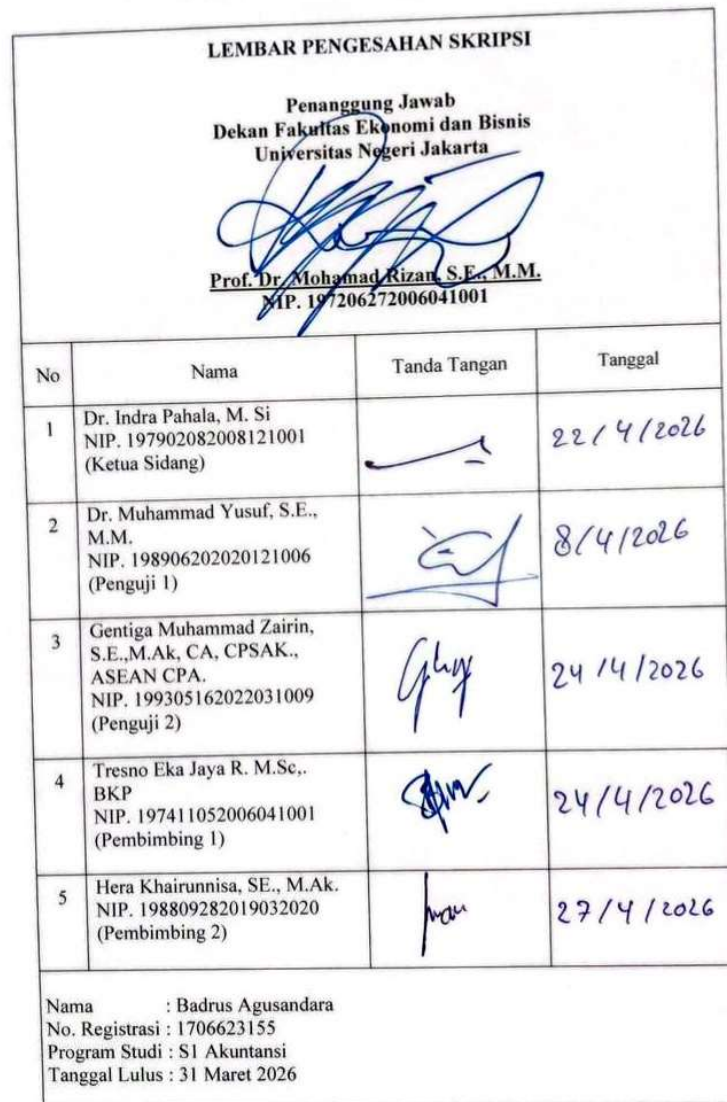 LEMBAR PENGESAHAN SKRIPSI
Penanggung Jawab
Dekan Fakultas Ekonomi dan Bisnis
Universitas Negeri Jakarta
Prof. Dr. Mohamad Rizan, S.E., M.M.
NIP. 197206272006041001
No Nama Tanda Tangan Tanggal
1 Dr. Indra Pahala, M. Si
NIP. 197902082008121001
(Ketua Sidang)
22/4/2026
2 Dr. Muhammad Yusuf, S.E.,
M.M.
NIP. 198906202020121006
(Penguji 1)
8/4/2026
3 Gentiga Muhammad Zairin,
S.E.,M.Ak, CA, CPSAK.,
ASEAN CPA.
NIP. 199305162022031009
(Penguji 2)
24/4/2026
4 Tresno Eka Jaya R. M.Sc,.
BKP
NIP. 197411052006041001
(Pembimbing 1)
24/4/2026
5 Hera Khairunnisa, SE., M.Ak.
NIP. 198809282019032020
(Pembimbing 2)
27/4/2026
Nama : Badrus Agusandara
No. Registrasi : 1706623155
Program Studi : S1 Akuntansi
Tanggal Lulus : 31 Maret 2026